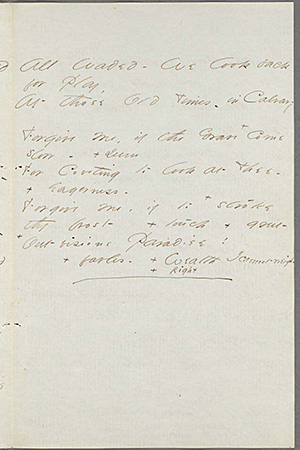 All waded - We look back
for Play,
At those Old Times - in Calvary,
Forgive me, if the Grave + come
slow - + seem
For Coveting to look at Thee -
+ Eagerness -
Forgive me, if to + stroke
thy frost + touch + greet -
Outvisions Paradise!
+ fables - +
+ Right